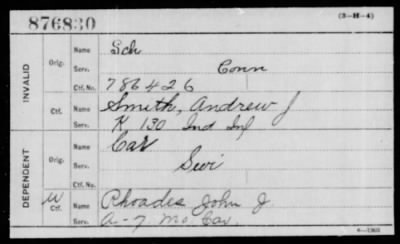 876830 (3—H—4)
INVALID
Orig. Name Sch
Serv. Conn
Ctf. No. 786426
Ctf. Name Smith, Andrew J
Serv. K 130 Ind Inf
DEPENDENT
Orig. Name Car
Serv. Swi
Ctf. No.
W Ctf. Name Rhoades John J.
Serv. A-7 Mo. Cav.
6—1303